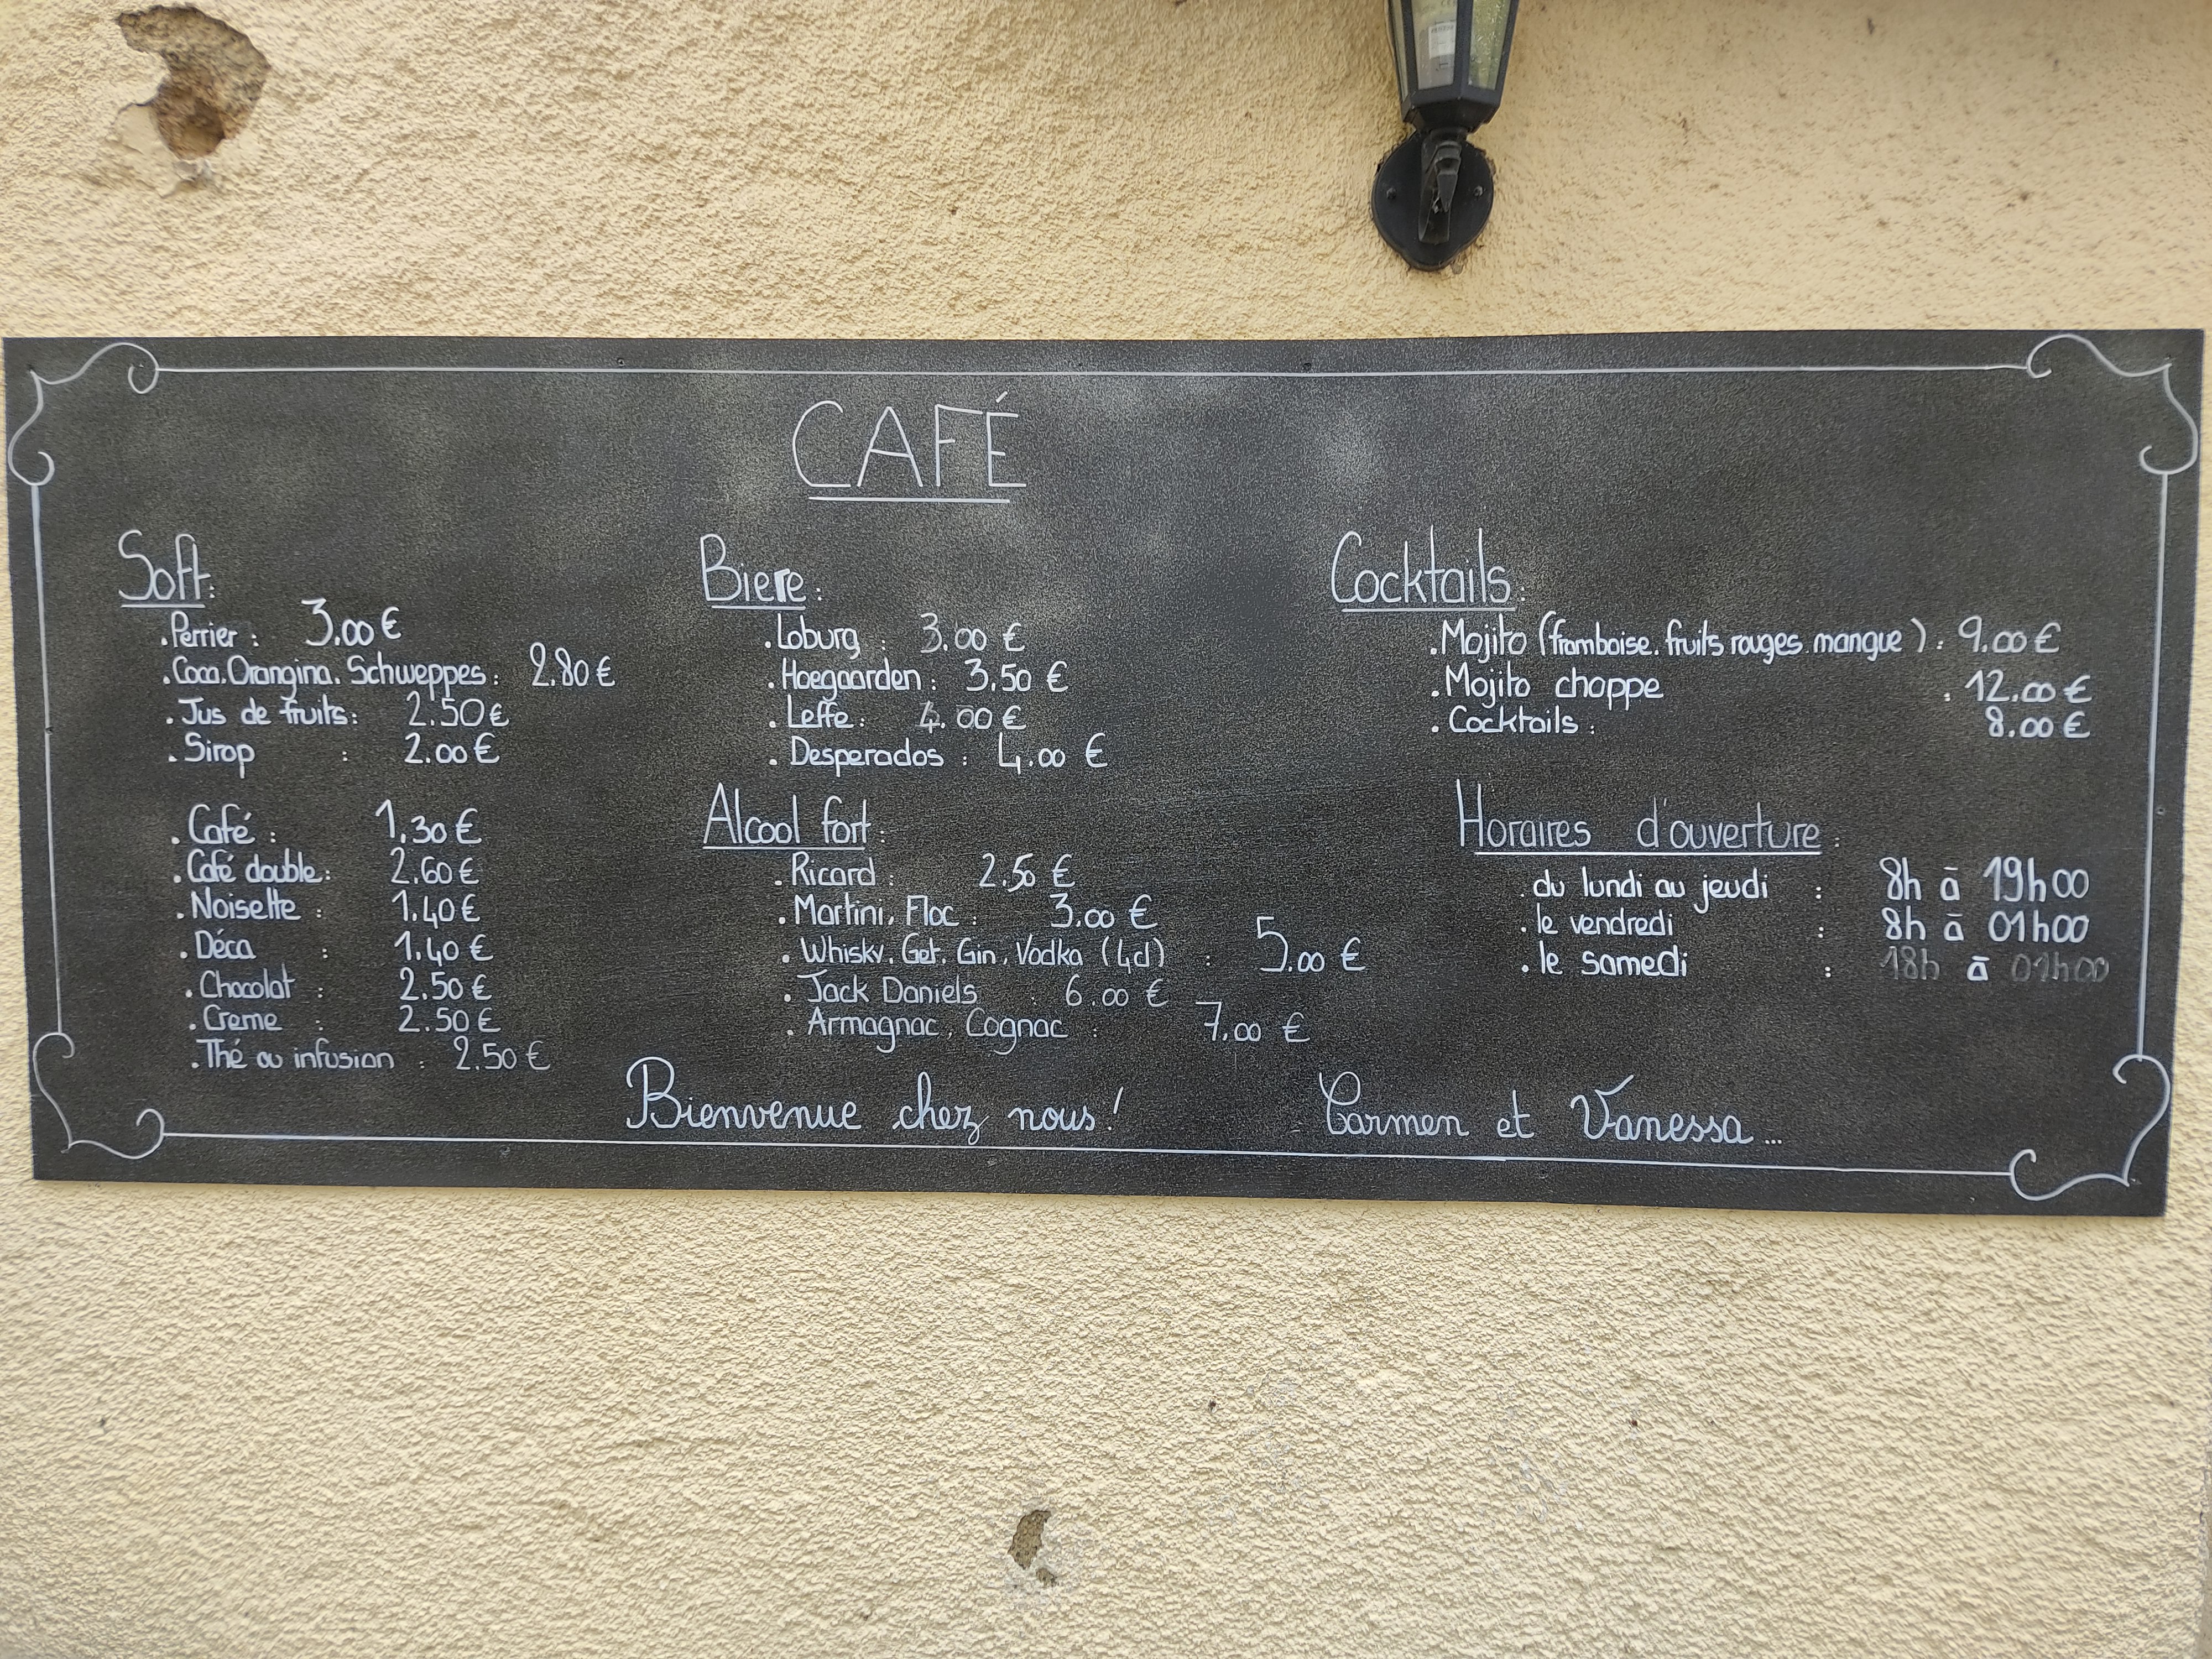 CAFÉ
Soft:
.Perrier : 3.00 €
.Coca.Orangina.Schweppes: 2.80 €
.Jus de fruits: 2.50 €
.Sirop : 2.00 €
.Café : 1.30 €
.Café double: 2.60 €
.Noisette : 1.40 €
.Déca : 1.40 €
.Chocolat : 2.50 €
.Creme : 2.50 €
.Thé ou infusion : 2.50 €
Biere:
.Loburg : 3.00 €
.Hoegaarden : 3.50 €
.Leffe : 4.00 €
.Desperados : 4.00 €
Alcool fort:
.Ricard : 2.50 €
.Martini, Floc : 3.00 €
.Whisky, Get, Gin, Vodka (4cl) : 5.00 €
.Jack Daniels : 6.00 €
.Armagnac, Cognac : 7.00 €
Cocktails:
.Mojito (framboise.fruits rouges.mangue) : 9.00 €
.Mojito choppe : 12.00 €
.Cocktails : 8.00 €
Horaires d'ouverture:
.du lundi au jeudi : 8h à 19h00
.le vendredi : 8h à 01h00
.le samedi : 18h à 01h00
Bienvenue chez nous! Carmen et Vanessa...